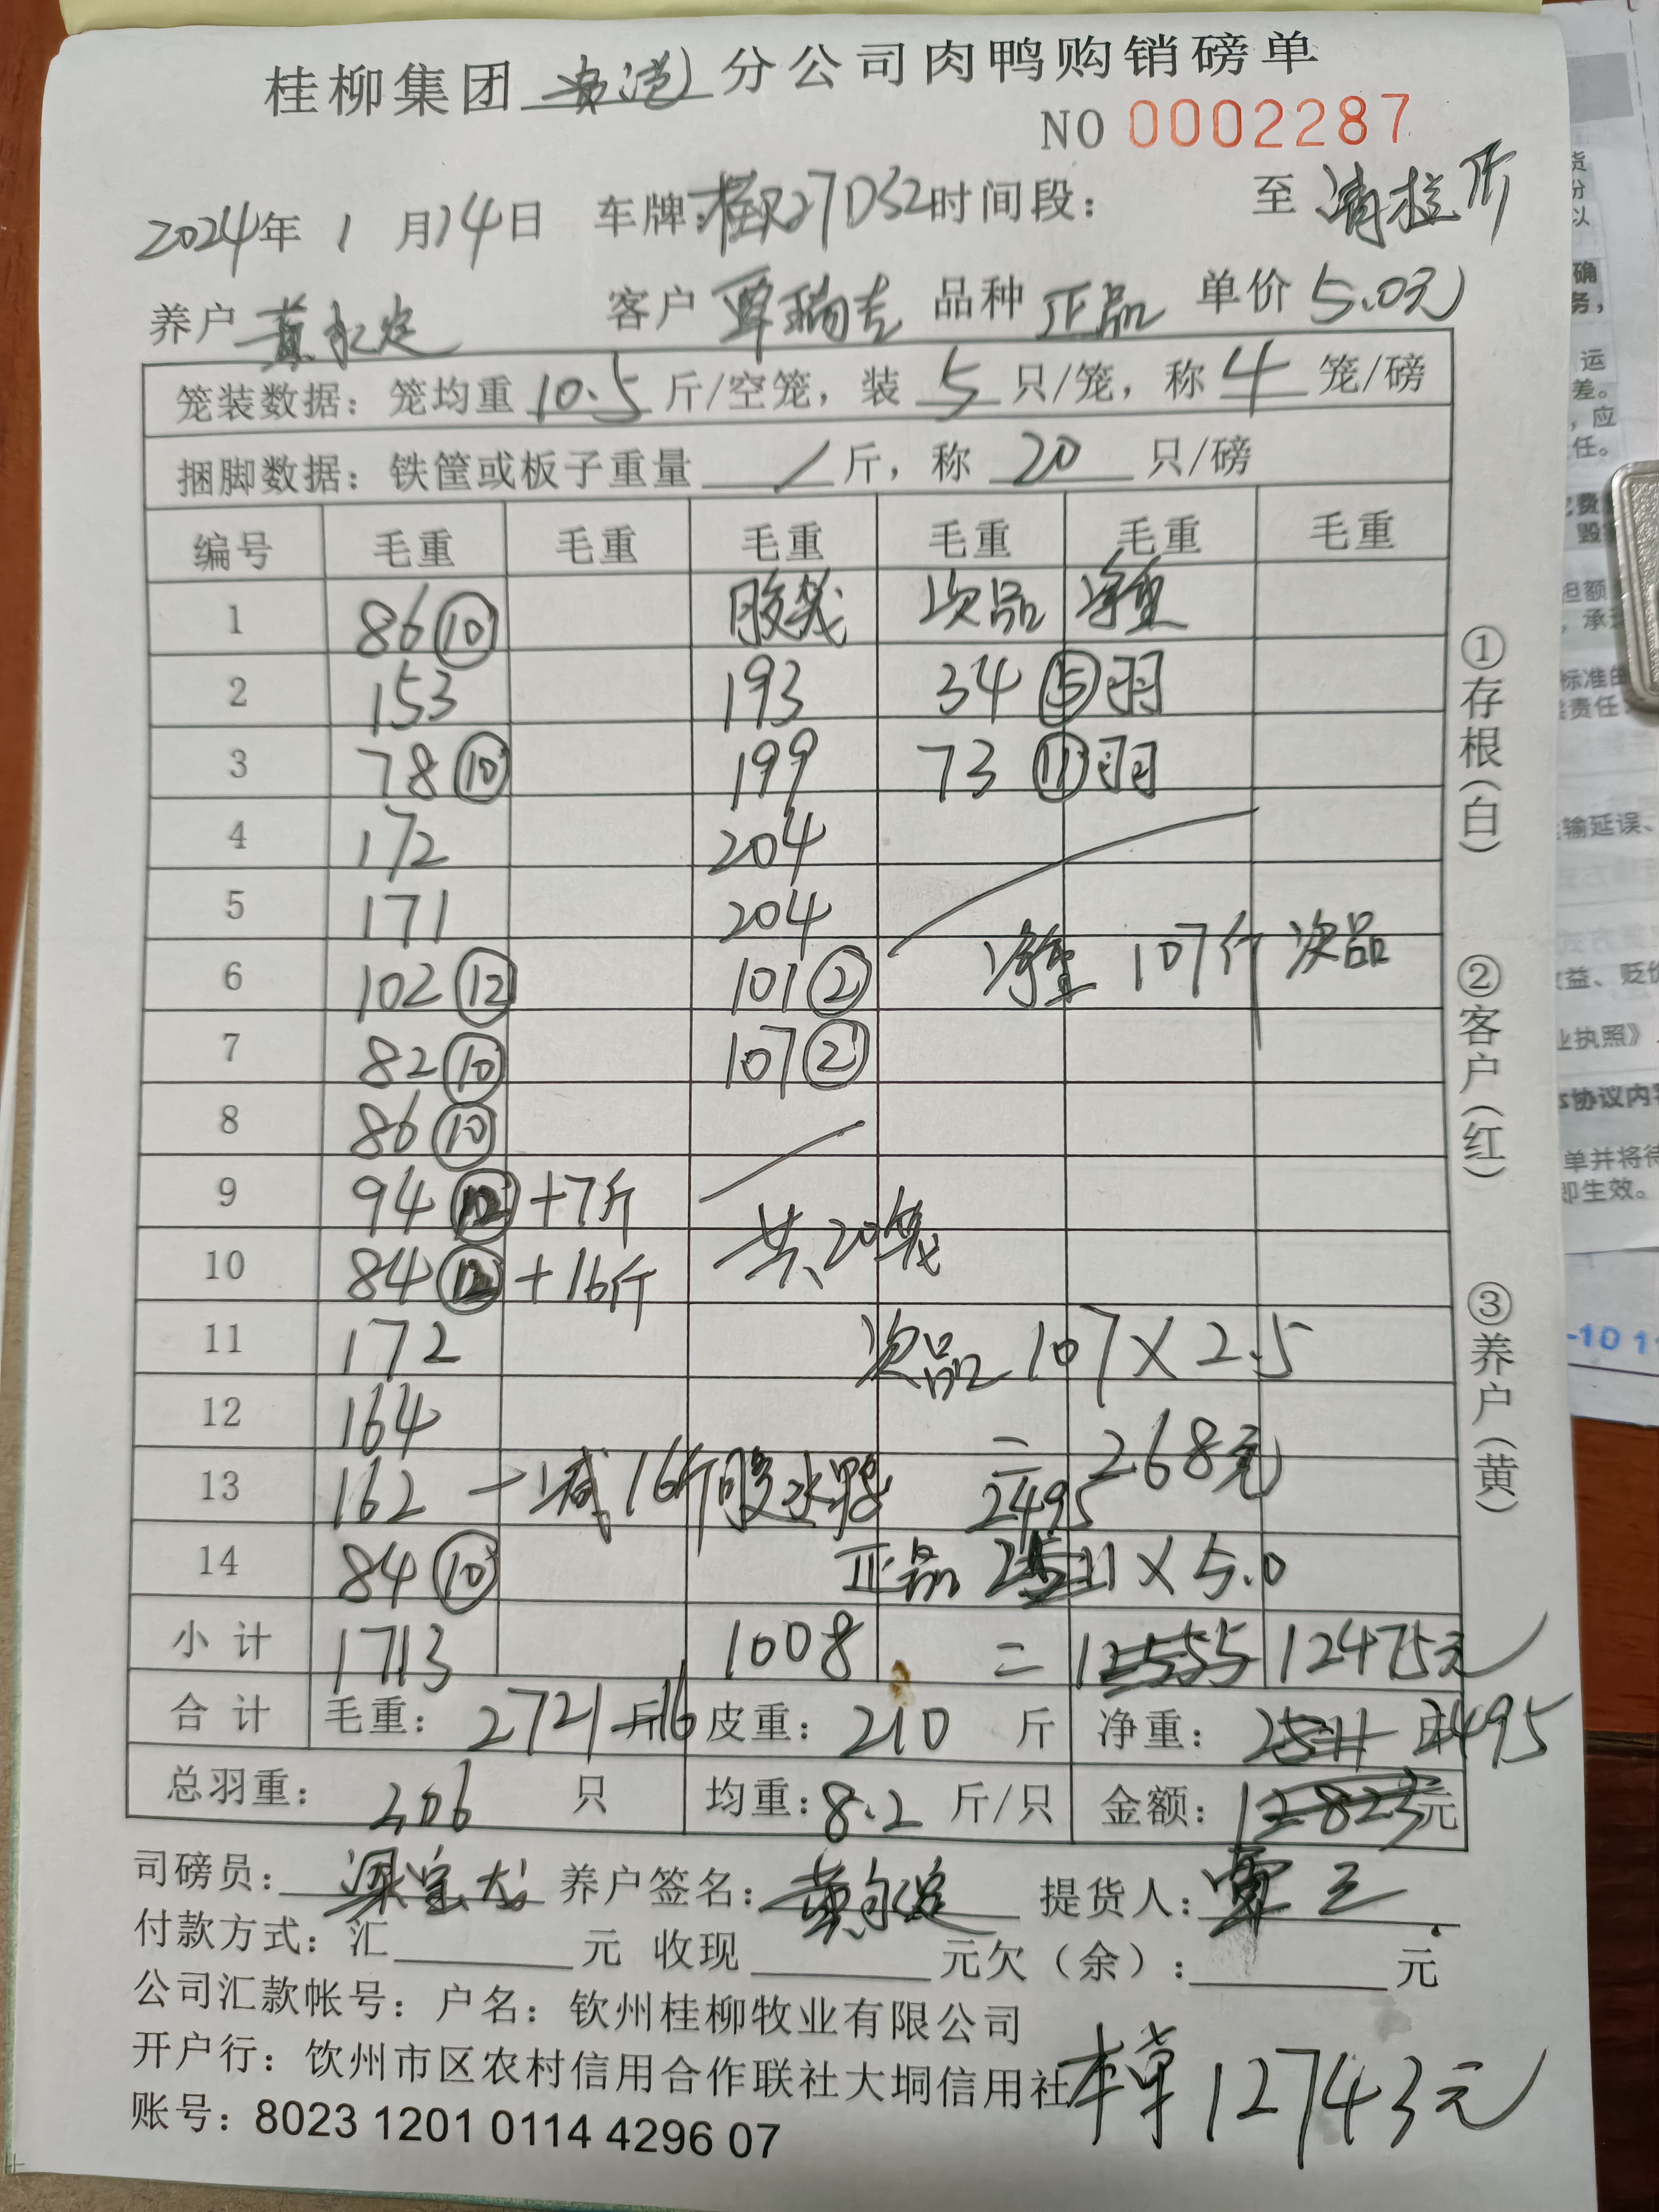 桂柳集团 贵港 分公司肉鸭购销磅单
NO 0002287
2024年 1 月14日 车牌:桂R27D52时间段: 至 清拉所
养户 黄永定 客户 覃瑞吉 品种 正品 单价 5.0元
笼装数据: 笼均重 10.5 斤/空笼, 装 5 只/笼, 称 4 笼/磅
捆脚数据: 铁筐或板子重量 / 斤, 称 20 只/磅
编号 毛重 毛重 毛重 毛重 毛重 毛重
1 86⑩ 胶笼 次品 净重
2 153 193 34 ⑤羽
3 78⑩ 199 73 ⑪羽
4 172 204
5 171 204
6 102⑫ 101② 净重 107斤 次品
7 82⑩ 107②
8 86⑩
9 94⑫+7斤
10 84⑫+16斤 共20笼
11 172 次品 107×2.5
12 164 = 268元
13 162 - 减16斤胶水鸭 2495
14 84⑩ 正品 2511×5.0
小计 1713 1008 = 12555 12475元
合计 毛重: 2721斤-16 皮重: 210 斤 净重: 2511 斤 2495
总羽重: 206 只 均重: 8.2 斤/只 金额: 12823元
司磅员: 梁宝龙 养户签名: 黄永定 提货人: 覃三
付款方式: 汇 元 收现 元欠(余): 元
公司汇款帐号: 户名: 钦州桂柳牧业有限公司
开户行: 饮州市区农村信用合作联社大垌信用社
账号: 8023 1201 0114 4296 07
本单 12743元
①存根(白) ②客户(红) ③养户(黄)